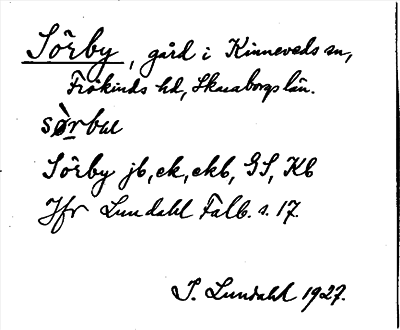 Sörby, gård i Kinneveds sn,
Frökinds hd, Skaraborgs län.
Sörby jb, ek, ekb, GS, Kb
Jfr Lundahl Falb. s. 17.
I. Lundahl 1927.